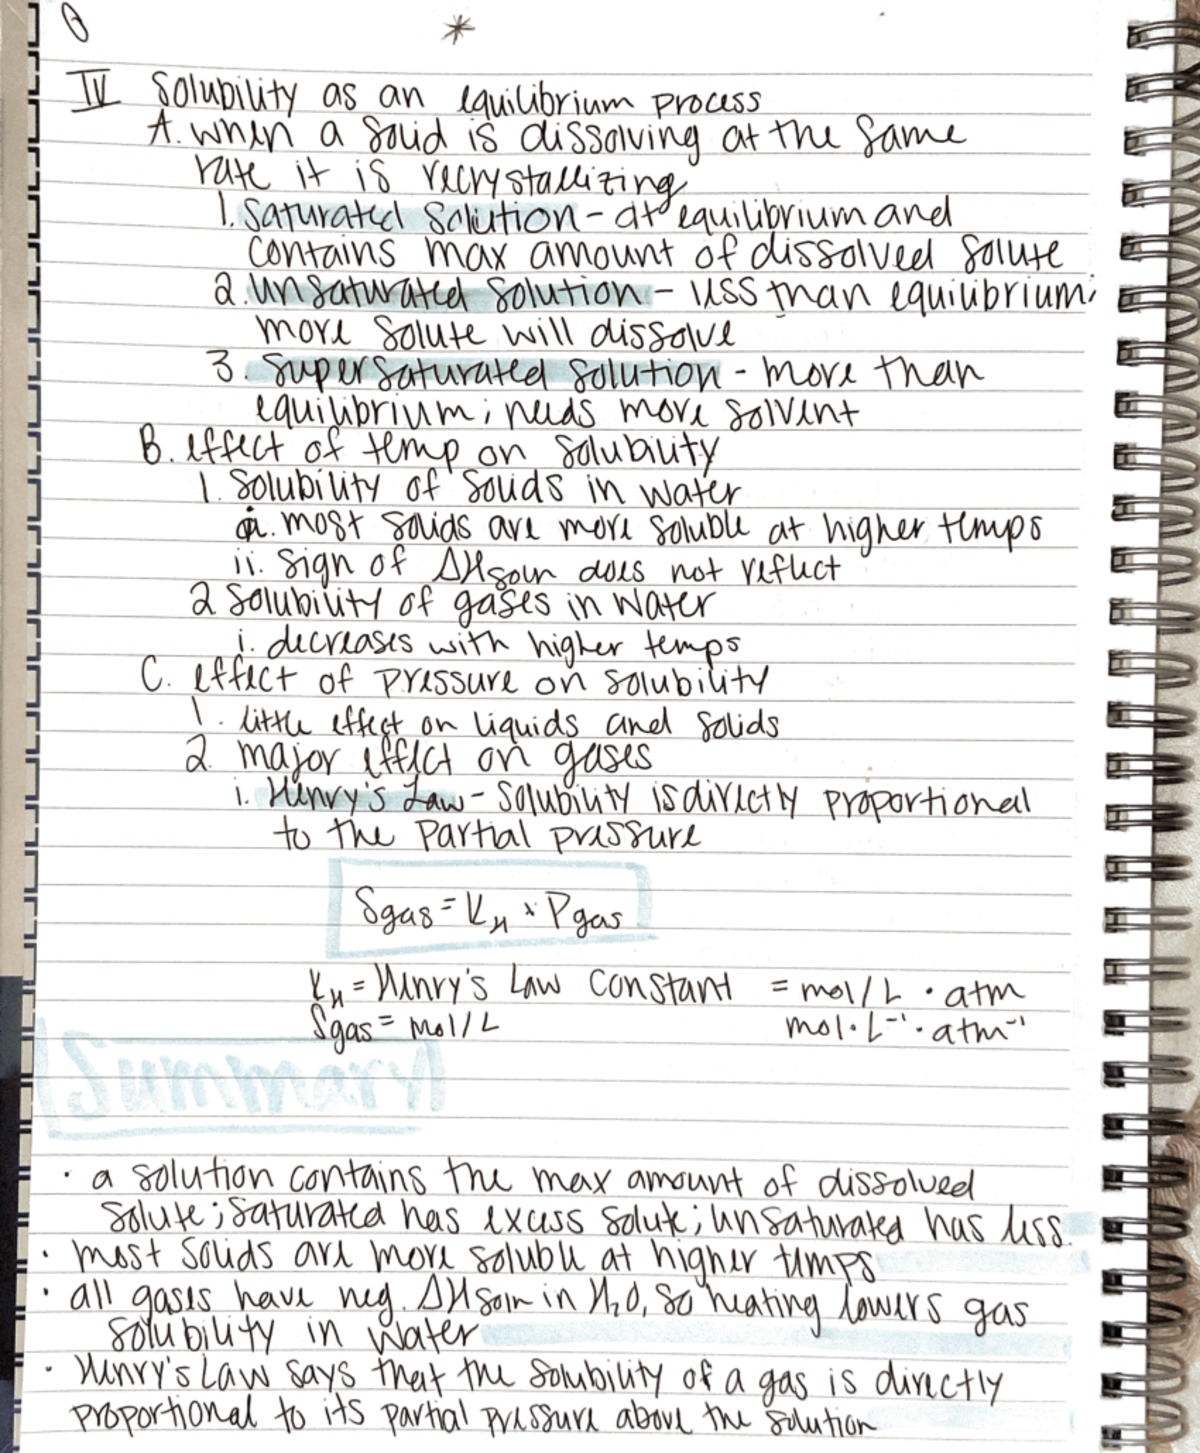 *
IV Solubility as an equilibrium process
A. when a solid is dissolving at the same
rate it is recrystallizing
1. Saturated Solution - at equilibrium and
contains max amount of dissolved solute
2. Unsaturated Solution - less than equilibrium;
more solute will dissolve
3. Supersaturated Solution - more than
equilibrium; needs more solvent
B. effect of temp on solubility
1. Solubility of Solids in water
i. most solids are more soluble at higher temps
ii. sign of ΔHsoln does not reflect
2 Solubility of gases in water
i. decreases with higher temps
C. effect of pressure on solubility
1. little effect on liquids and solids
2. major effect on gases
i. Henry's Law - Solubility is directly proportional
to the partial pressure
Sgas = KH × Pgas
KH = Henry's Law Constant = mol/L · atm
Sgas = mol/L mol·L⁻¹·atm⁻¹
Summary
· a solution contains the max amount of dissolved
solute; saturated has excess solute; unsaturated has less.
· most solids are more soluble at higher temps
· all gases have neg. ΔHsoln in H₂O, so heating lowers gas
solubility in water
· Henry's Law says that the solubility of a gas is directly
proportional to its partial pressure above the solution